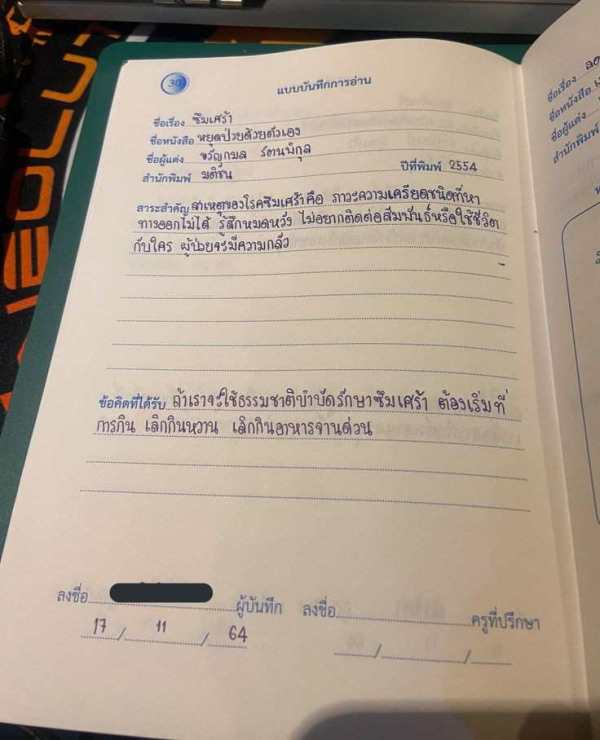 30
แบบบันทึกการอ่าน
ชื่อเรื่อง ซึมเศร้า
ชื่อหนังสือ หยุดป่วยด้วยตัวเอง
ชื่อผู้แต่ง ขวัญกมล รัตนพิกุล
สำนักพิมพ์ มติชน ปีที่พิมพ์ 2554
สาระสำคัญ สาเหตุของโรคซึมเศร้าคือ ภาวะความเครียดชนิดที่หา
ทางออกไม่ได้ รู้สึกหมดหวัง ไม่อยากติดต่อสัมพันธ์หรือใช้ชีวิต
กับใคร ผู้ป่วยจะมีความกลัว
ข้อคิดที่ได้รับ ถ้าเราจะใช้ธรรมชาติบำบัดรักษาซึมเศร้า ต้องเริ่มที่
การกิน เลิกกินหวาน เลิกกินอาหารจานด่วน
ลงชื่อ ผู้บันทึก ลงชื่อ ครูที่ปรึกษา
17 / 11 / 64 / /